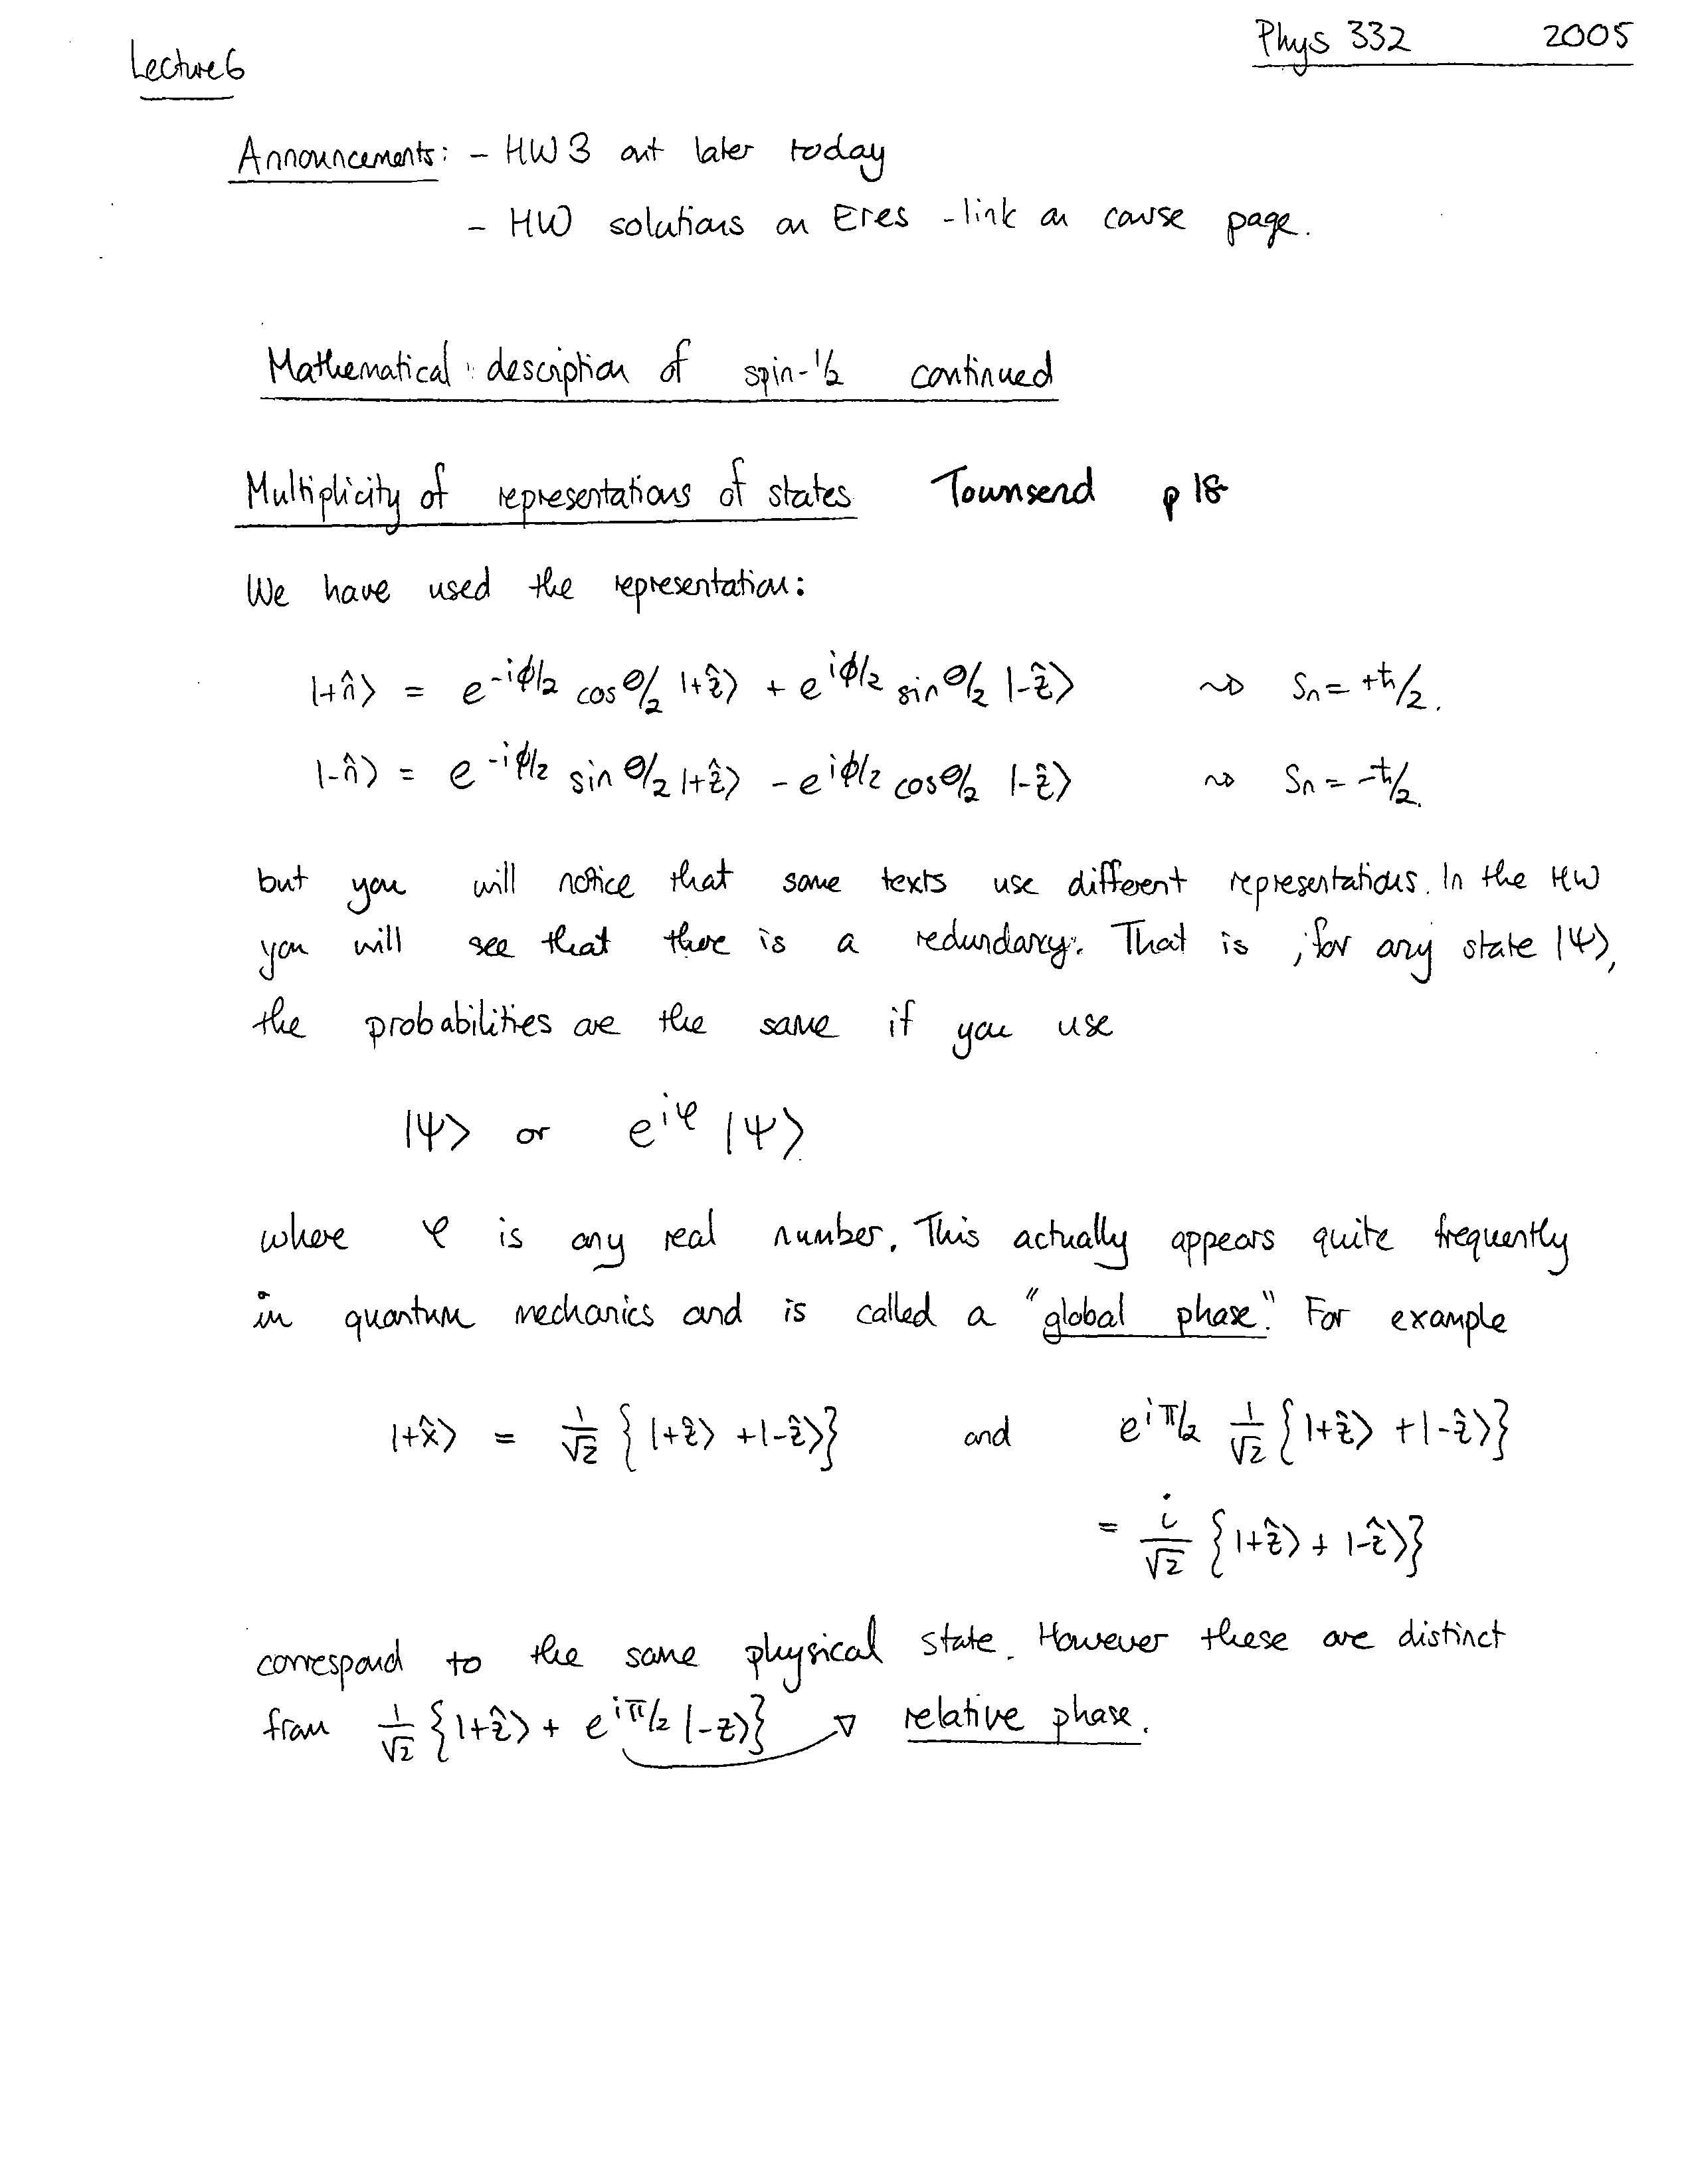 Lecture 6
Phys 332 2005
Announcements: - HW 3 out later today
- HW solutions on Eres - link on course page.
Mathematical description of spin-1/2 continued
Multiplicity of representations of states Townsend p 18
We have used the representation:
|+n̂⟩ = e^{-iϕ/2} cos θ/2 |+ẑ⟩ + e^{iϕ/2} sin θ/2 |-ẑ⟩ ⇝ Sn = +ħ/2.
|-n̂⟩ = e^{-iϕ/2} sin θ/2 |+ẑ⟩ - e^{iϕ/2} cos θ/2 |-ẑ⟩ ⇝ Sn = -ħ/2.
but you will notice that some texts use different representations. In the HW
you will see that there is a redundancy. That is, for any state |Ψ⟩,
the probabilities are the same if you use
|Ψ⟩ or e^{iφ} |Ψ⟩
where φ is any real number. This actually appears quite frequently
in quantum mechanics and is called a "global phase." For example
|+x̂⟩ = 1/√2 {|+ẑ⟩ + |-ẑ⟩} and e^{iπ/2} 1/√2 {|+ẑ⟩ + |-ẑ⟩}
= i/√2 {|+ẑ⟩ + |-ẑ⟩}
correspond to the same physical state. However these are distinct
from 1/√2 {|+ẑ⟩ + e^{iπ/2} |-z⟩} → relative phase.